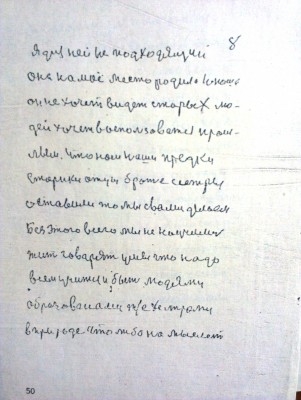 8
я для неё не подходящий
она на моё место родила юношу
он не хочет видет старых лю-
дей хочет воспользоватся прош-
лым. Что нам наши предки
старики отцы братя сестры
оставили то мы с вами делаем
Без этого всего мы не научимсь
жит говорят умеи что надо
всем учится и быт людями
образоваными не хитрыми
в природе что тобо на мыслет
50